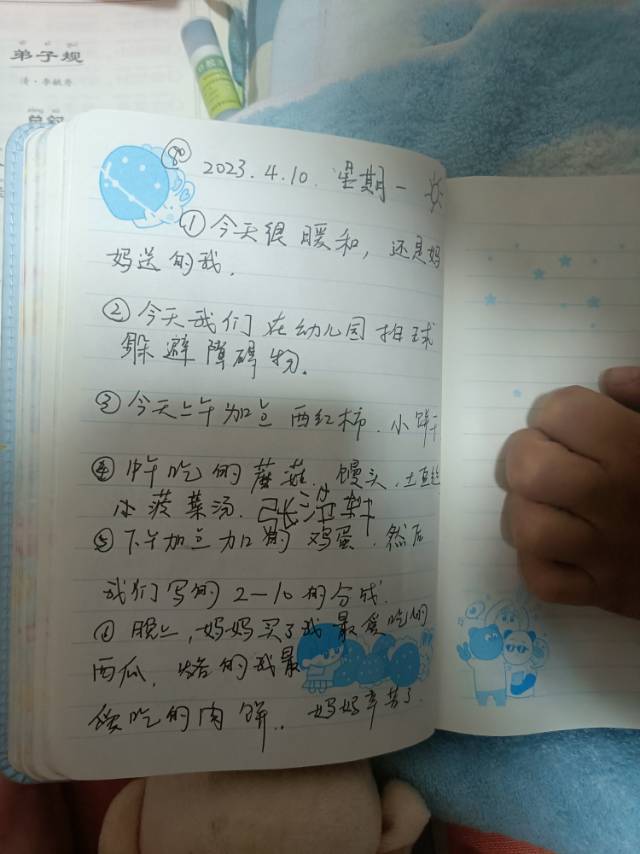 弟子规
清·李毓秀
80
2023.4.10. 星期一
①今天很暖和, 还是妈
妈送的我.
②今天我们在幼儿园拍球
躲避障碍物.
③今天上午加点西红柿. 小饼干
④中午吃的蘑菇. 馒头. 土豆
小菠菜汤.
⑤下午加点加的鸡蛋. 然后
我们写的2-10的合成.
⑥晚上, 妈妈买了我最爱吃的
西瓜. 烙的我最
爱吃的肉饼. 妈妈辛苦了.